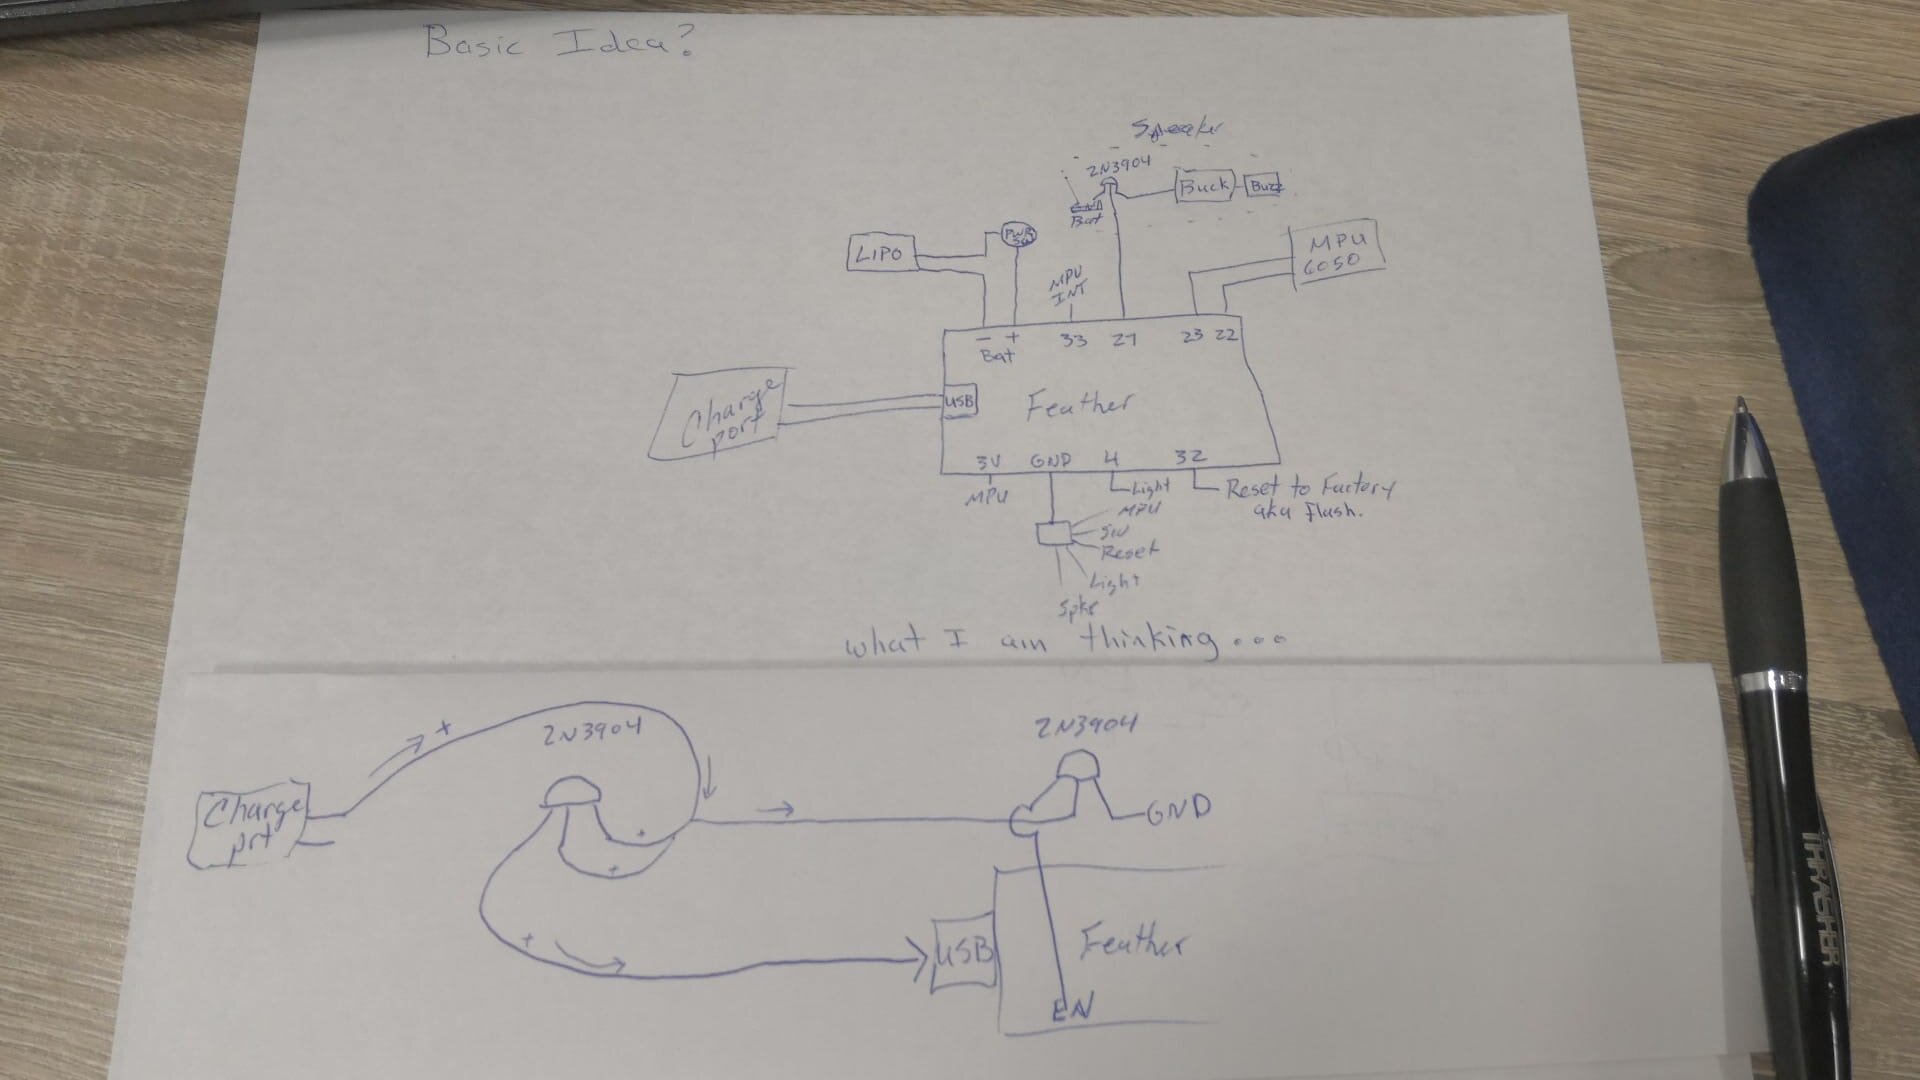 Basic Idea?
Speaker
2N3904
Buck
Buzz
Bat
LIPO
PWR
MPU
6050
MPU
INT
- + 33 27 23 22
Bat
Charge
port
USB
Feather
3V GND 4 32
MPU
Light
Reset to Factory
aka Flush.
MPU
SW
Reset
Light
Spkr
what I am thinking...
+
2N3904
2N3904
Charge
prt
+
+
GND
+
USB
Feather
EN
THRASHER